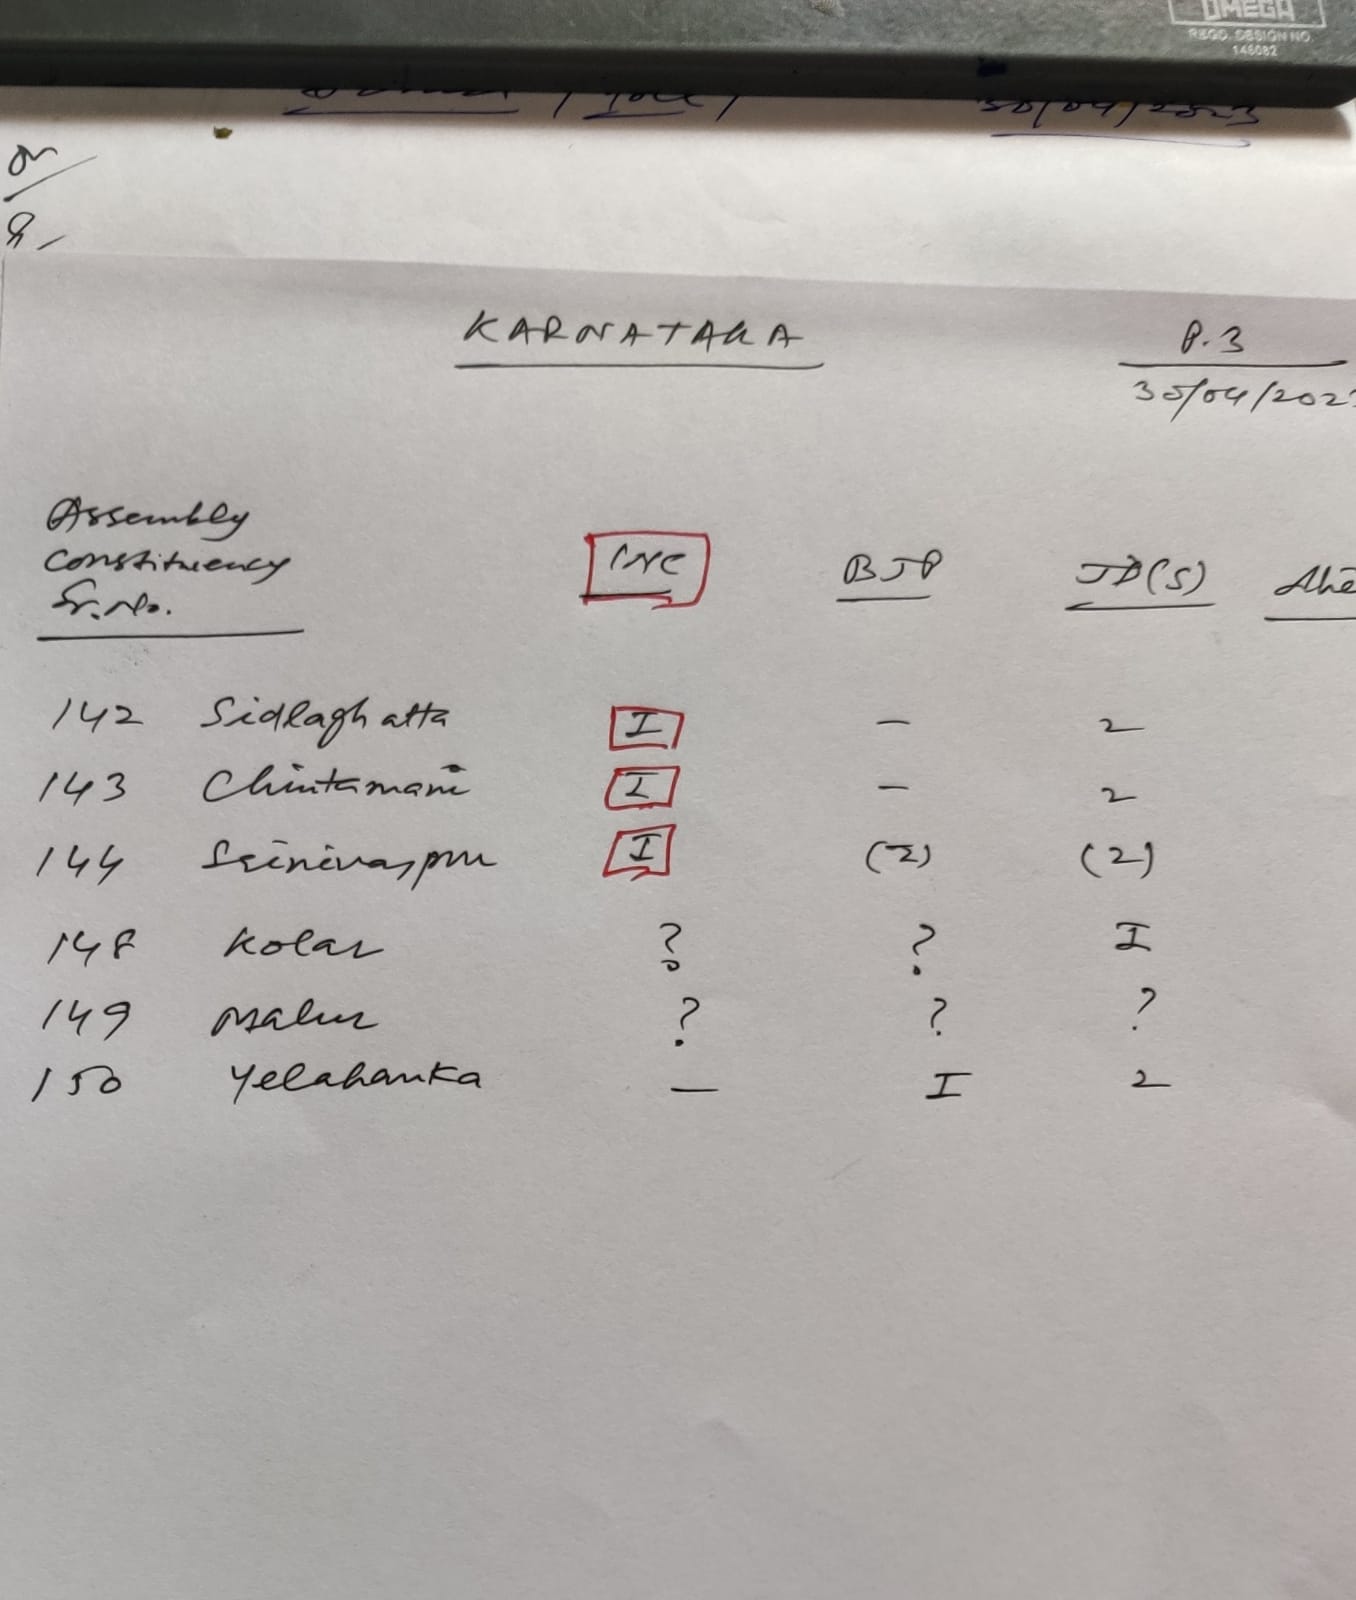 OMEGA
REGD. DESIGN NO.
146082
30/04/2023
KARNATAKA P.3
30/04/202
Assembly
Constituency
Sr. No. INC BJP JD(S)
142 Sidlaghatta I - 2
143 Chintamani I - 2
144 Srinivaspur I (2) (2)
148 Kolar ? ? I
149 Malur ? ? ?
150 Yelahanka - I 2